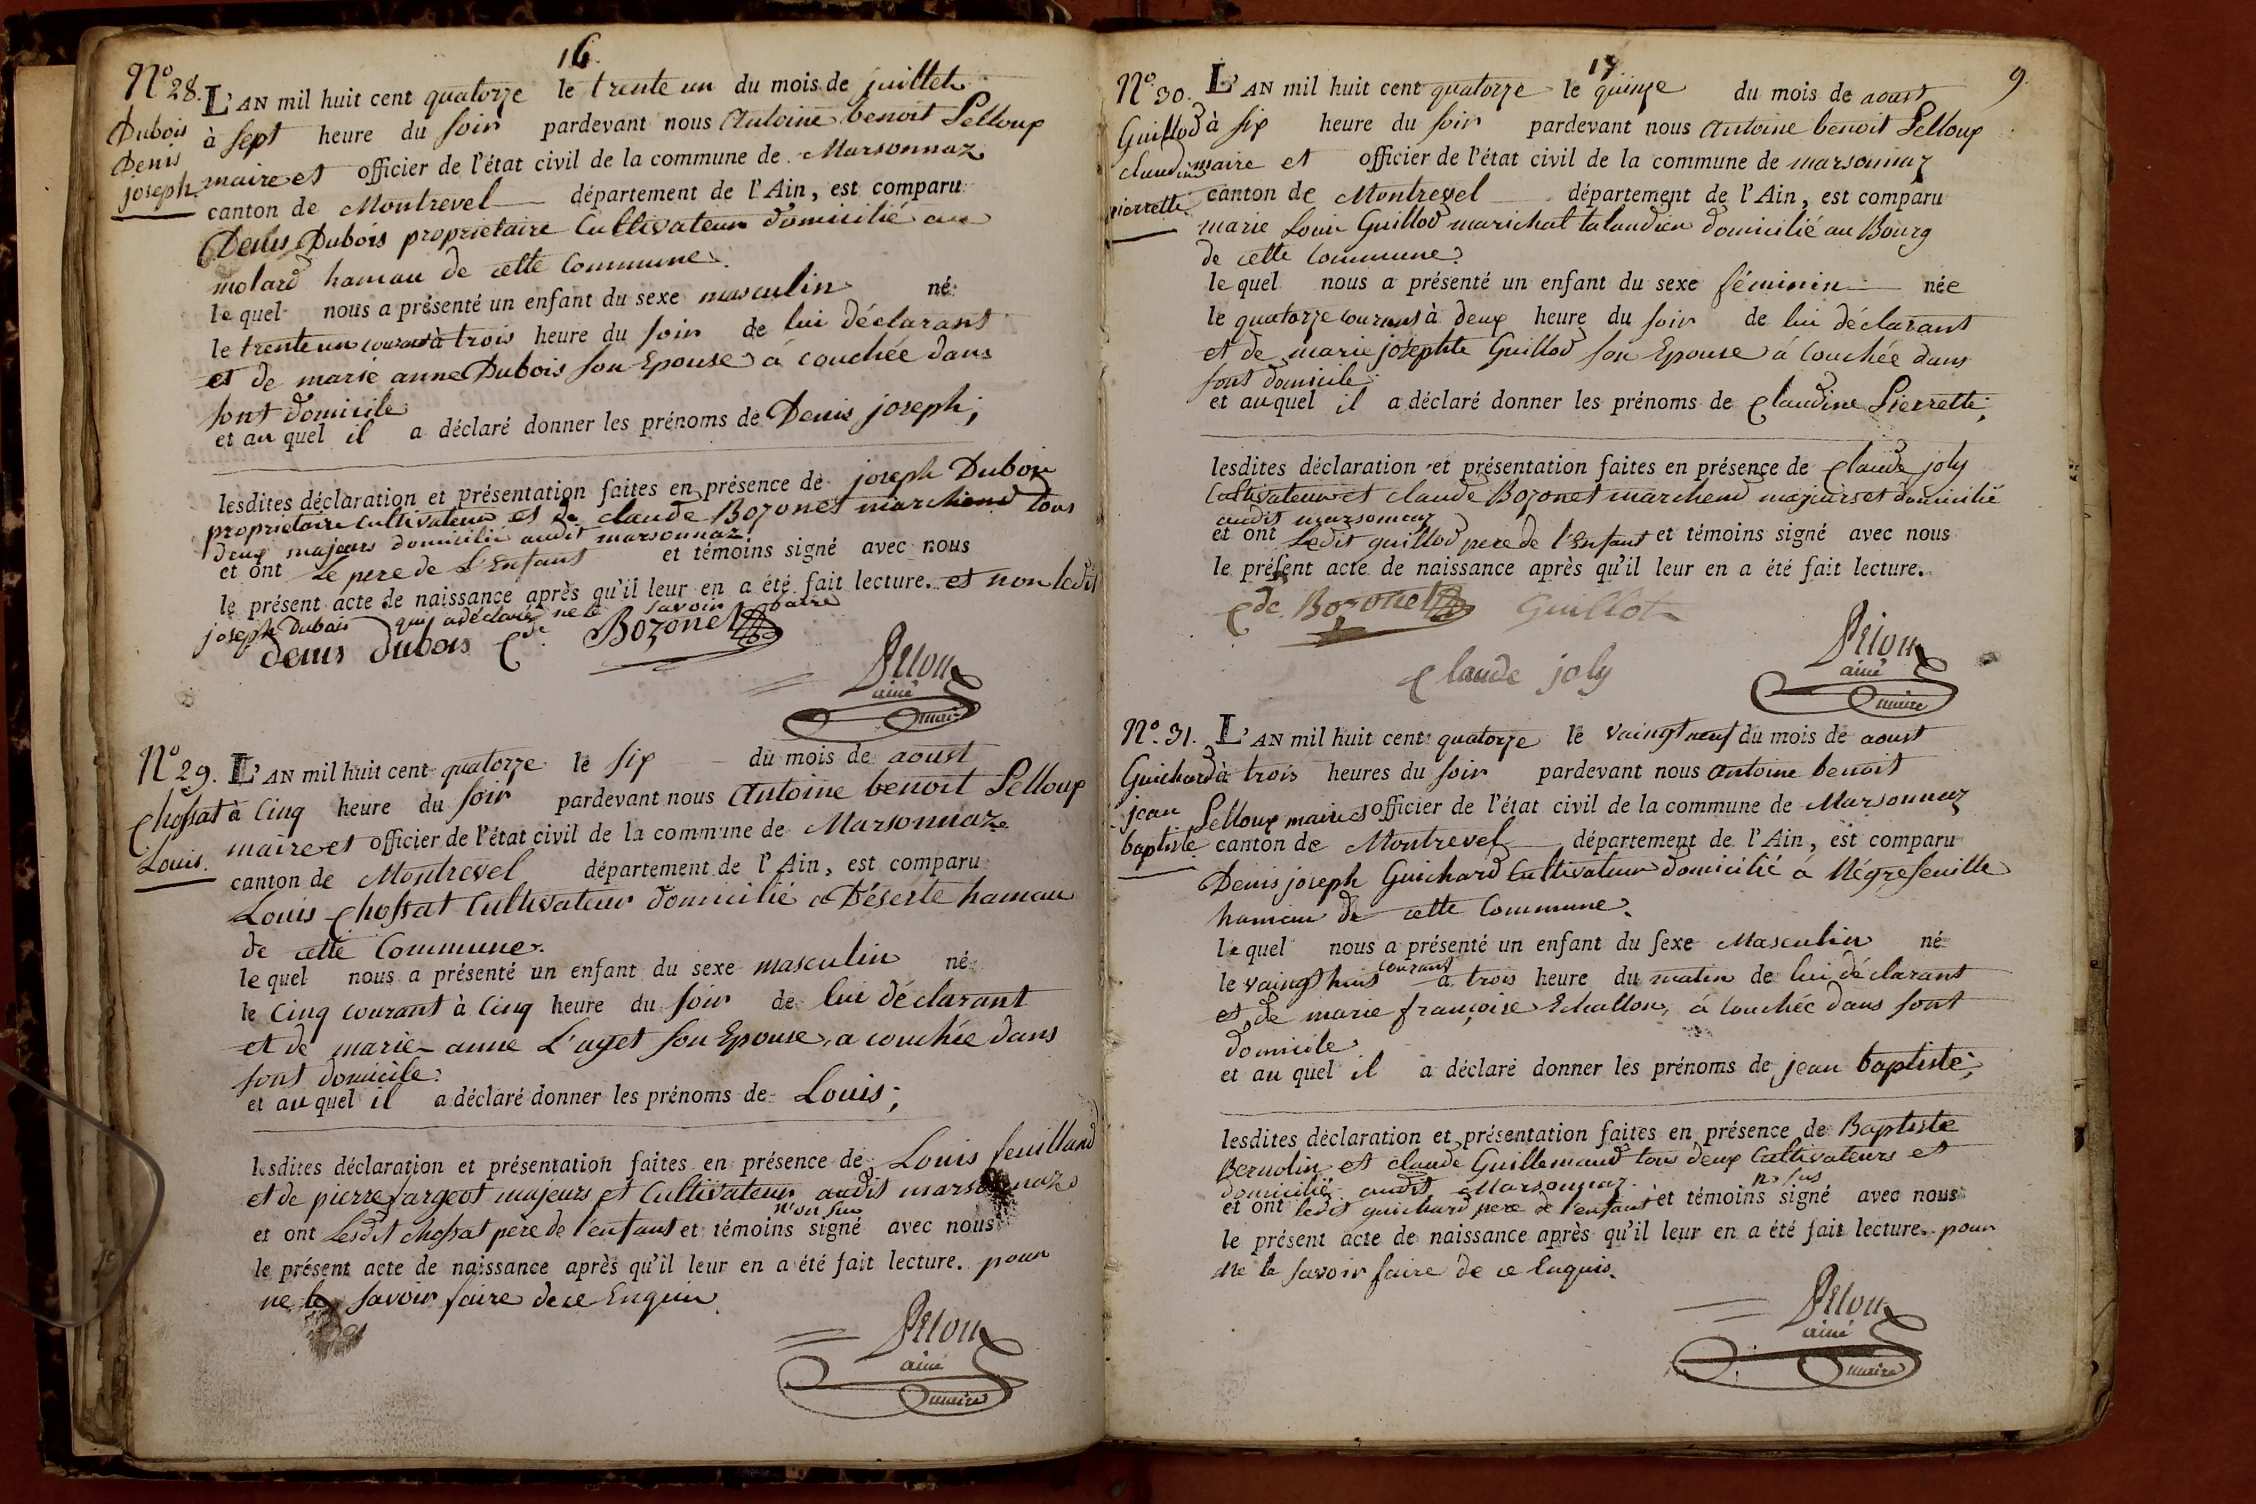 16.
N° 28.
Dubois
Denis
joseph
L'AN mil huit cent quatorze le trente un du mois de juillet
à sept heure du soir pardevant nous Antoine benoit Pelloux
maire et officier de l'état civil de la commune de Marsonnaz
canton de Montrevel département de l'Ain, est comparu
Denis Dubois proprietaire Cultivateur domicilié au
molard hamau de cette Commune.
le quel nous a présenté un enfant du sexe masculin né
le trente un courant à trois heure du soir de lui déclarant
et de marie anne Dubois son Epouse à couchée dans
sont domicile
et au quel il a déclaré donner les prénoms de Denis joseph;
lesdites déclaration et présentation faites en présence de joseph Dubois
proprietaire Cultivateur et de claude Bozonet marchand tous
deux majeurs domicilié audit marsonnaz.
et ont Le pere de L'Enfant et témoins signé avec nous
le présent acte de naissance après qu'il leur en a été fait lecture. et non ledit
joseph Dubois qui a déclaré ne le savoir faire
denis dubois Cde Bozonet
Pelloux
ainé
maire
N° 29.
Chossat
Louis.
L'AN mil huit cent quatorze le six du mois de aoust
à Cinq heure du soir pardevant nous Antoine benoit Pelloux
maire et officier de l'état civil de la commune de Marsonnaz
canton de Montrevel département de l'Ain, est comparu
Louis Chossat Cultivateur domicilié a Déserte hamau
de cette Commune.
le quel nous a présenté un enfant du sexe masculin né
le Cinq courant à Cinq heure du soir de lui déclarant
et de marie anne L'uget son Epouse, a couchée dans
sont domicile.
et au quel il a déclaré donner les prénoms de Louis;
lesdites déclaration et présentation faites en présence de Louis feuilland
et de pierre fargeot majeurs et Cultivateur audit marsonnaz
n'ont sus
et ont Lesdit chossat pere de l'enfant et témoins signé avec nous
le présent acte de naissance après qu'il leur en a été fait lecture. pour
ne le savoir faire de ce Enquis
Pelloux
ainé
maire
17
9.
N° 30.
Guillod
claudine
pierrette
L'AN mil huit cent quatorze le quinze du mois de aoust
à six heure du soir pardevant nous Antoine benoit Pelloux
maire et officier de l'état civil de la commune de marsonnaz
canton de Montrevel département de l'Ain, est comparu
marie Louis Guillod marichal talandier domicilié au Bourg
de cette Commune.
le quel nous a présenté un enfant du sexe féminin née
le quatorze courant à deux heure du soir de lui déclarant
et de marie josephte Guillod son Epouse à Couchée dans
sont domicile
et au quel il a déclaré donner les prénoms de Claudine Pierrette;
lesdites déclaration et présentation faites en présence de Claude joly
Cultivateur et claude Bozonet marchand majeurs et domicilié
audit marsonnaz
et ont Ledit guillod pere de l'Enfant et témoins signé avec nous
le présent acte de naissance après qu'il leur en a été fait lecture.
Cde. Bozonet Guillot
Claude joly
Pelloux
ainé
maire
N° 31.
Guichard
jean
baptiste
L'AN mil huit cent quatorze le vaingt neuf du mois de aoust
à trois heures du soir pardevant nous Antoine benoit
Pelloux maire et officier de l'état civil de la commune de Marsonnaz
canton de Montrevel département de l'Ain, est comparu
Denis joseph Guichard Cultivateur domicilié à Négrefeuille
hamau de cette Commune.
le quel nous a présenté un enfant du sexe Masculin né
le vaingt huit courant à trois heure du matin de lui déclarant
et de marie françoise Echallon, à couchée dans sont
domicile
et au quel il a déclaré donner les prénoms de jean baptiste;
lesdites déclaration et présentation faites en présence de Baptiste
Bernolin et claude Guillemaud tous deux Cultivateurs et
domicilié audit Marsonnaz. n. sus
et ont ledit guichard pere de l'enfant et témoins signé avec nous
le présent acte de naissance après qu'il leur en a été fait lecture. pour
ne le savoir faire de ce Enquis.
Pelloux
ainé
maire